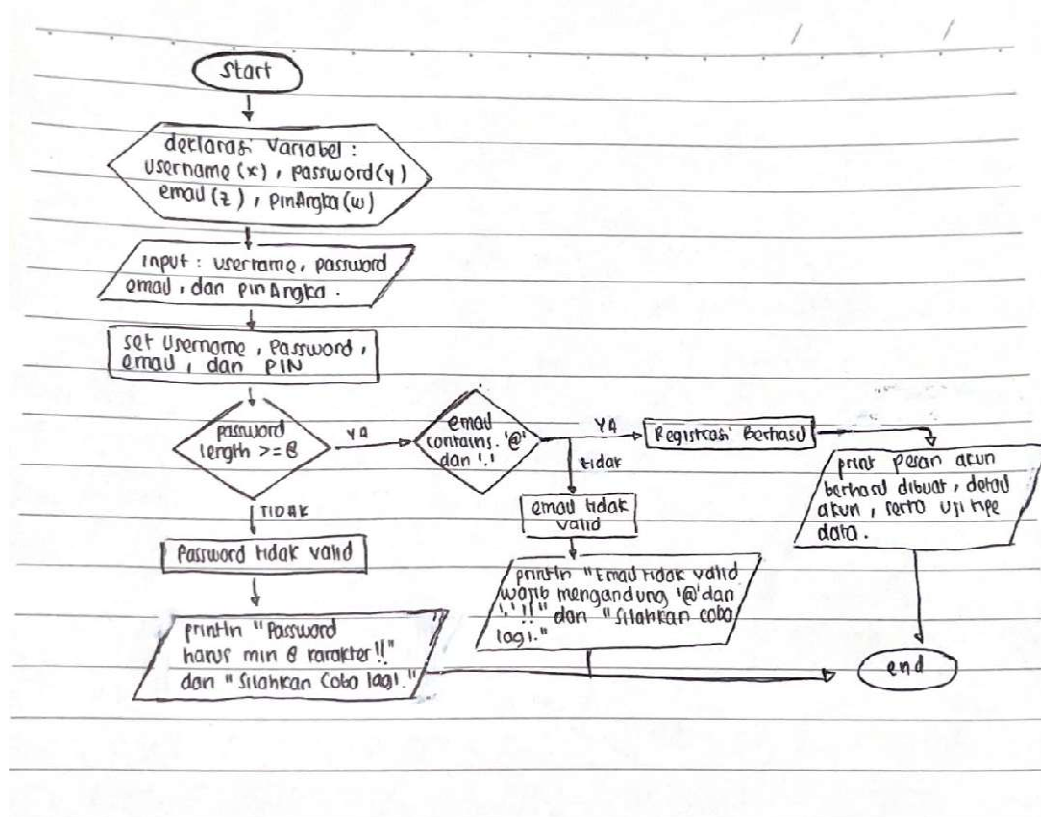 Start
deklarasi Variabel :
username (x) , password (y)
email (z) , pinAngka (w)
input : username, password
email , dan pin Angka .
set Username , Password ,
email , dan PIN
password
length >= 8
YA
email
contains. '@'
dan '.'
YA
Registrasi Berhasil
print pesan akun
berhasil dibuat , detail
akun , serta uji tipe
data .
tidak
email tidak
valid
println "Email tidak valid
wajib mengandung '@' dan
'.' !!" dan "Silahkan coba
lagi."
TIDAK
Password tidak valid
println "Password
harus min 8 karakter !!"
dan "Silahkan Coba lagi."
end